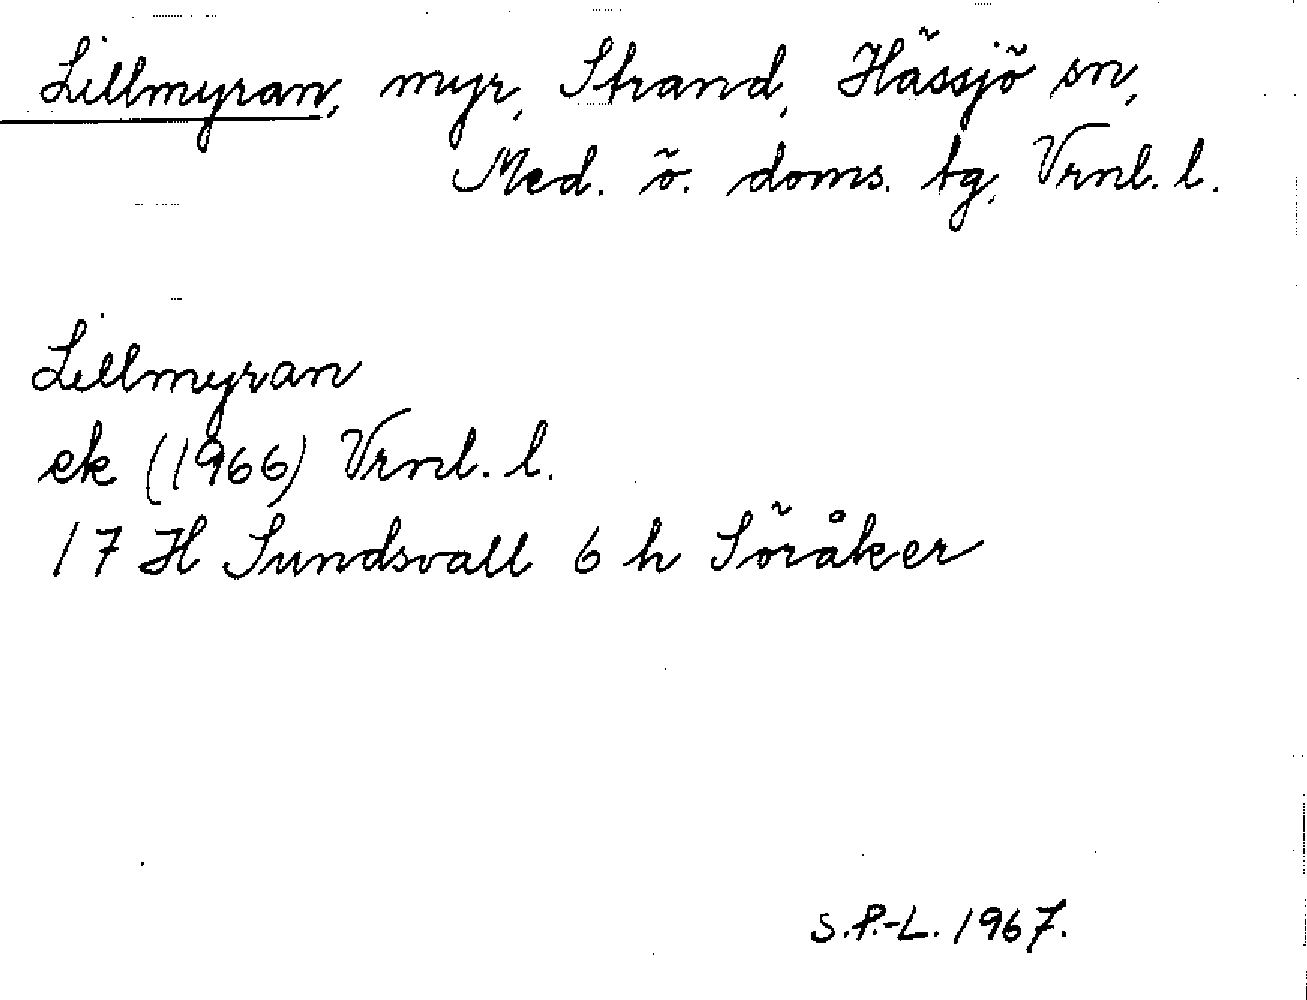 Lillmyran, myr, Strand, Hässjö sn,
Med. ö. doms. tg, Vrnl. l.
Lillmyran
ek (1966) Vrnl. l.
17 H Sundsvall 6 h Söråker
S.P.-L. 1967.